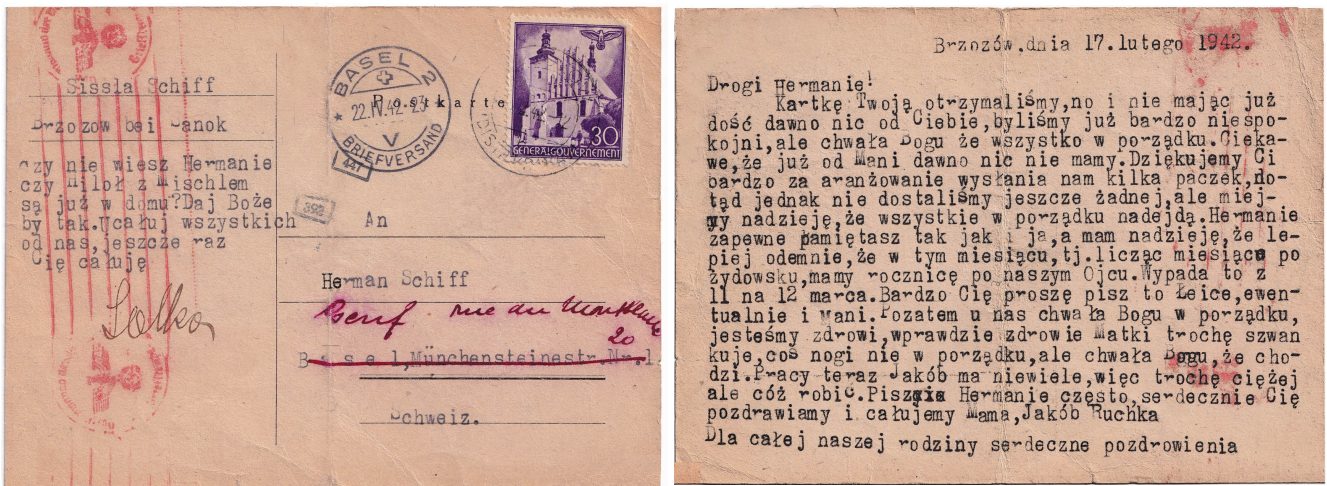 Sissla Schiff
Brzozow bei Sanok
czy nie wiesz Hermanie
czy Milol z Mischlem
są już w domu?Daj Boże
by tak.Ucałuj wszystkich
od nas,jeszcze raz
Cię całuję
BASEL 2
22.IV.42-23
V
BRIEFVERSAND
441
392
Postkarte
30
GENERALGOUVERNEMENT
An
Herman Schiff
Genf rue du
20
Basel,Münchensteinestr.Nr.1
Schweiz.
Brzozów,dnia 17.lutego 1942.
Drogi Hermanie!
Kartkę Twoją otrzymaliśmy,no i nie mając już
dość dawno nic od Ciebie,byliśmy już bardzo niespo-
kojni,ale chwała Bogu że wszystko w porządku.Cieka-
we,że już od Mani dawno nic nie mamy.Dziękujemy Ci
bardzo za aranżowanie wysłania nam kilka paczek,do-
tąd jednak nie dostaliśmy jeszcze żadnej,ale miej-
my nadzieję,że wszystkie w porządku nadejdą.Hermanie
zapewne pamiętasz tak jak i ja,a mam nadzieję,że le-
piej odemnie,że w tym miesiącu,tj.licząc miesiące po
żydowsku,mamy rocznicę po naszym Ojcu.Wypada to z
11 na 12 marca.Bardzo Cię proszę pisz to Łeice,ewen-
tualnie i Mani.Pozatem u nas chwała Bogu w porządku,
jesteśmy zdrowi,wprawdzie zdrowie Matki trochę szwan
kuje,coś nogi nie w porządku,ale chwała Bogu,że cho-
dzi.Pracy teraz Jakób ma niewiele,więc trochę ciężej
ale cóż robić.Piszcie Hermanie często,serdecznie Cię
pozdrawiamy i całujemy Mama,Jakób Ruchka
Dla całej naszej rodziny serdeczne pozdrowienia